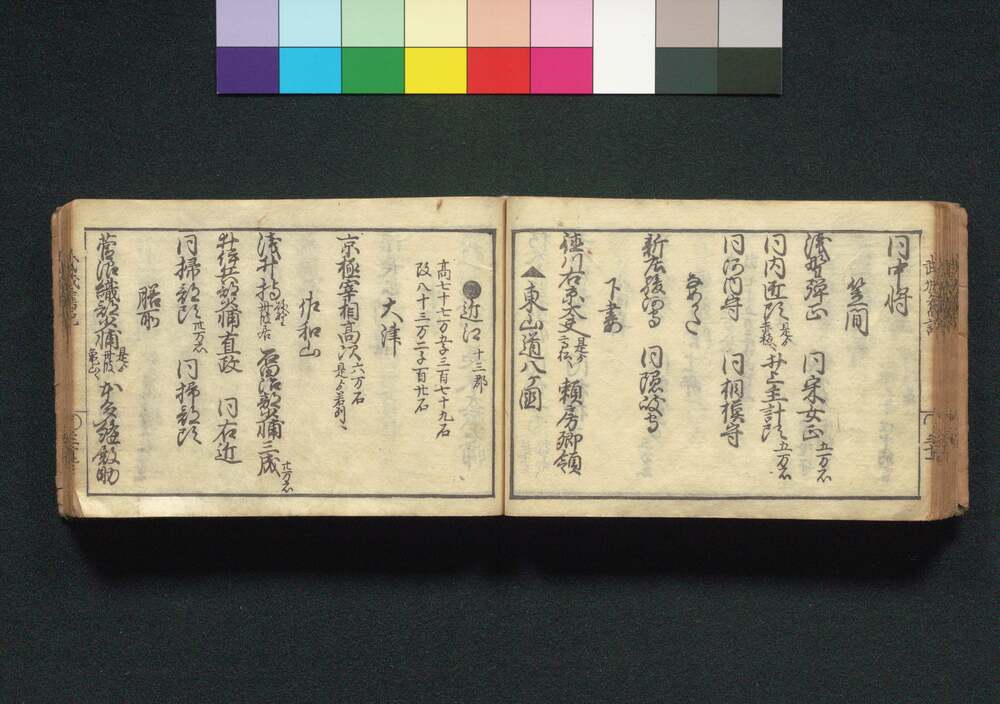 同中将
笠間
浅野弾正 同采女正 五万石
同内匠頭 是ゟ赤穂へ 井上主計頭 五万石
同河内守 同相模守
新庄駿河守 同隠岐守
下妻
徳川右京大夫 是ゟ 頼房卿領
▲東山道八ヶ国
近江 十三郡
高七十七万五千三百七十九石
改八十三万二千百廿石
大津
京極宰相高次 六万石 是ゟ若州へ
佐和山
浅井 石治部少輔三成 廿万石
井伊兵部少輔直政 同右近
同掃部頭 卅万石 同掃部頭
膳所
菅沼織部少輔 是ゟ丹波亀山へ 本多縫殿助